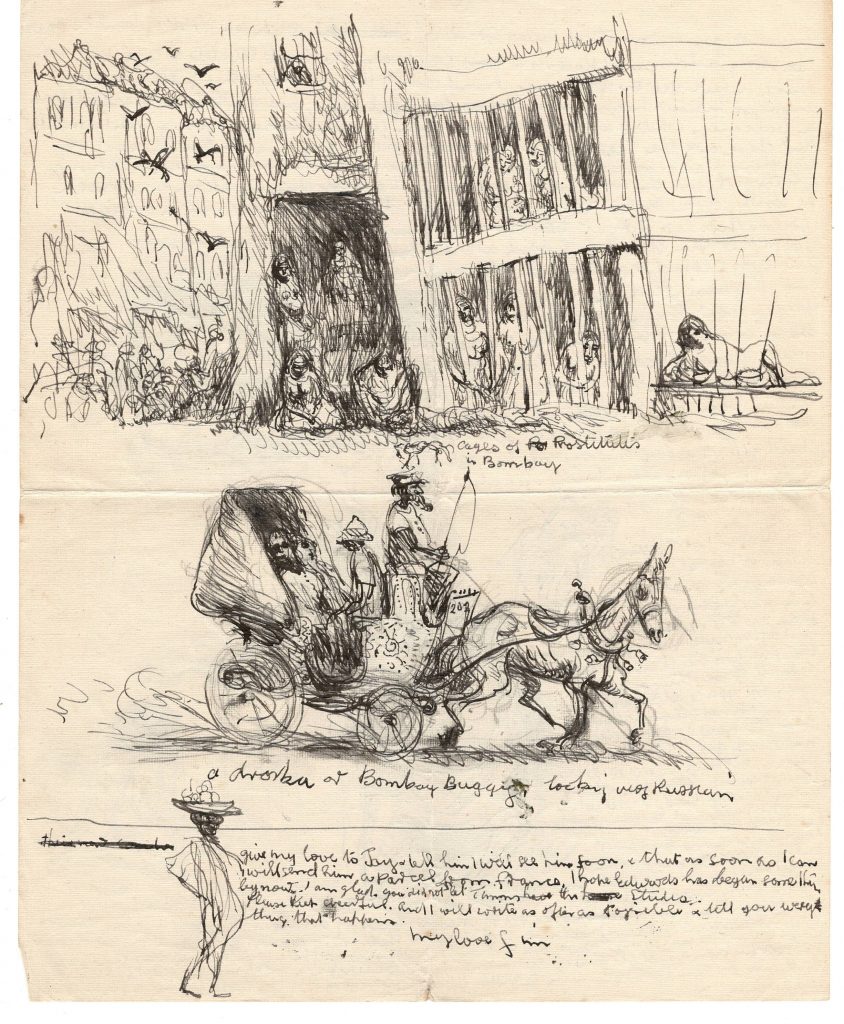 cages of Po Prostitutis
in Bombay
202
a droska or Bombay Buggy looking very Russian
give my love to Jay & tell him I will see him soon, & that as soon as I can
I will send him a parcel from France, I hope Edwards has began something
by now. I am glad you did not at the Studio.
Please keep cheerful. and I will write as often as possible & tell you every
thing that happens.
my love